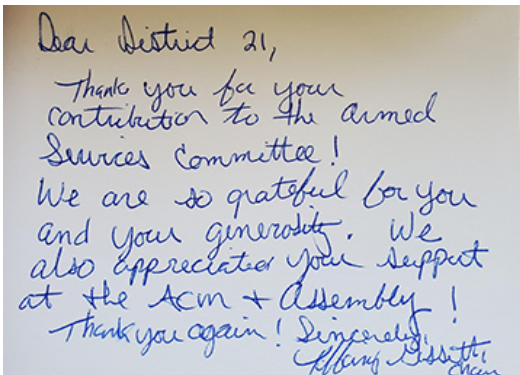 Dear District 21,
Thank you for your
contribution to the armed
Services Committee!
We are so grateful for you
and your generosity. We
also appreciated your support
at the ACM + Assembly!
Thank you again! Sincerely,
Chair